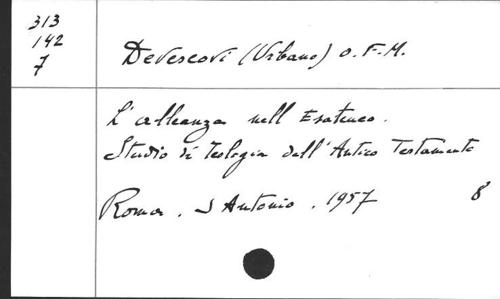 313
142
7
Devescovi (Urbano) O.F.M.
L'alleanza nell'Esateuco.
Studio di teologia dell'Antico Testamento
Roma. S Antonio. 1957 8